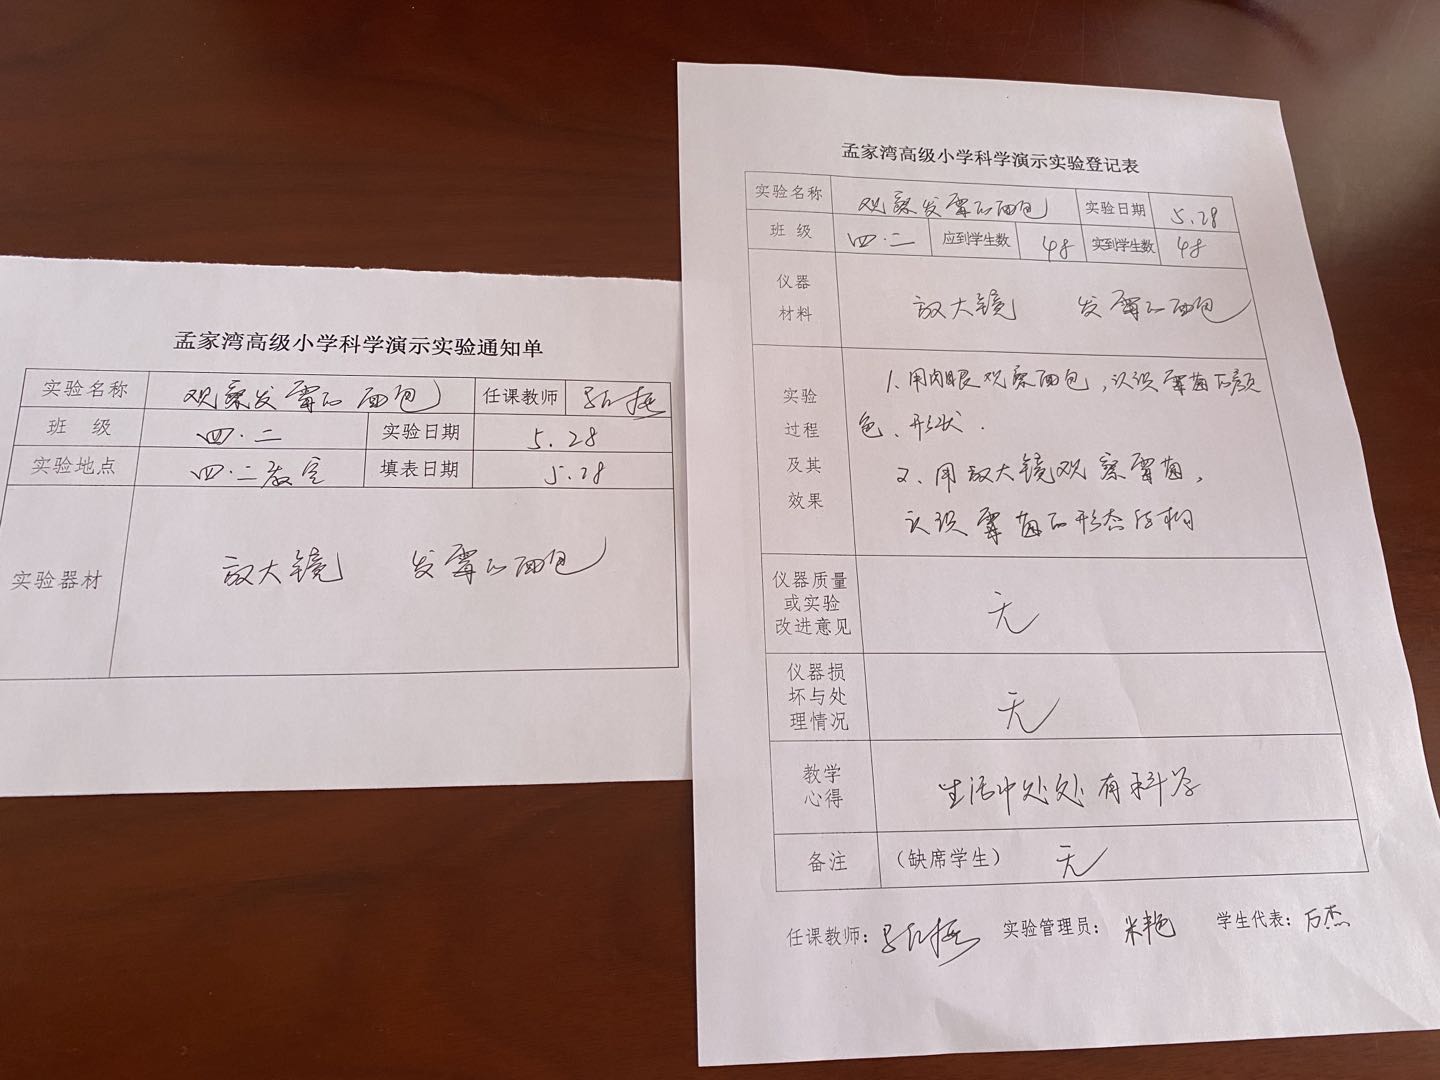 孟家湾高级小学科学演示实验通知单
实验名称 观察发霉的面包 任课教师
班 级 四.二 实验日期 5.28
实验地点 四.二教室 填表日期 5.28
实验器材 放大镜 发霉的面包
孟家湾高级小学科学演示实验登记表
实验名称 观察发霉的面包 实验日期 5.28
班 级 四.二 应到学生数 48 实到学生数 48
仪器
材料
放大镜 发霉的面包
实验
过程
及其
效果
1、用肉眼观察面包,认识霉菌的颜
色、形状.
2、用放大镜观察霉菌,
认识霉菌的形态结构
仪器质量
或实验
改进意见
无
仪器损
坏与处
理情况
无
教学
心得
生活中处处有科学
备注 (缺席学生) 无
任课教师: 实验管理员: 米艳 学生代表: 万杰